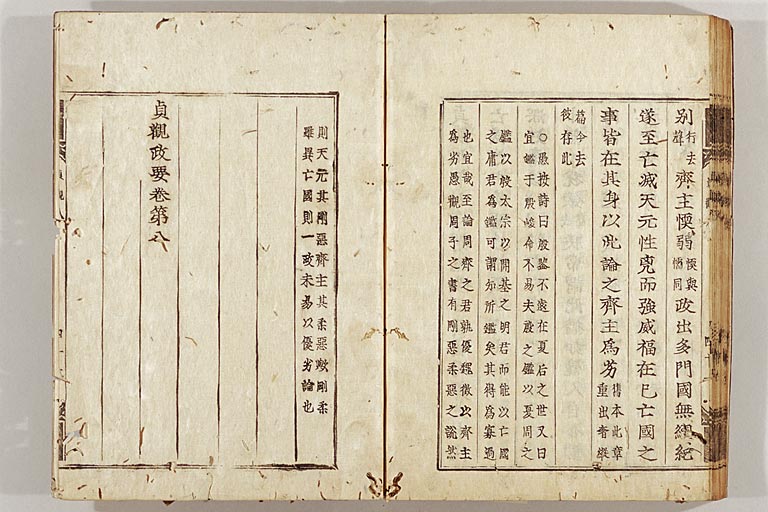 别行去聲齊主愞弱愞與懦同政出多門國無綱紀
遂至亡滅天元性兇而強威福在已亡國之
事皆在其身以此論之齊主爲劣舊本此章重出者縱
篇今去
彼存此
○愚按詩曰殷鑒不遠在夏后之世又曰
宜鑑于殷峻命不易夫殷之鑑以夏周之
鑑以殷太宗以開基之明君而能以亡國
之庸君爲鑑可謂知所鑑矣其得爲寡過
也宜哉至論周齊之君孰優魏徵以齊主
爲劣愚觀周子之書有剛惡柔惡之說然
則天元其剛惡齊主其柔惡歟剛柔
雖異亡國則一政未易以優劣論也
貞觀政要卷第八